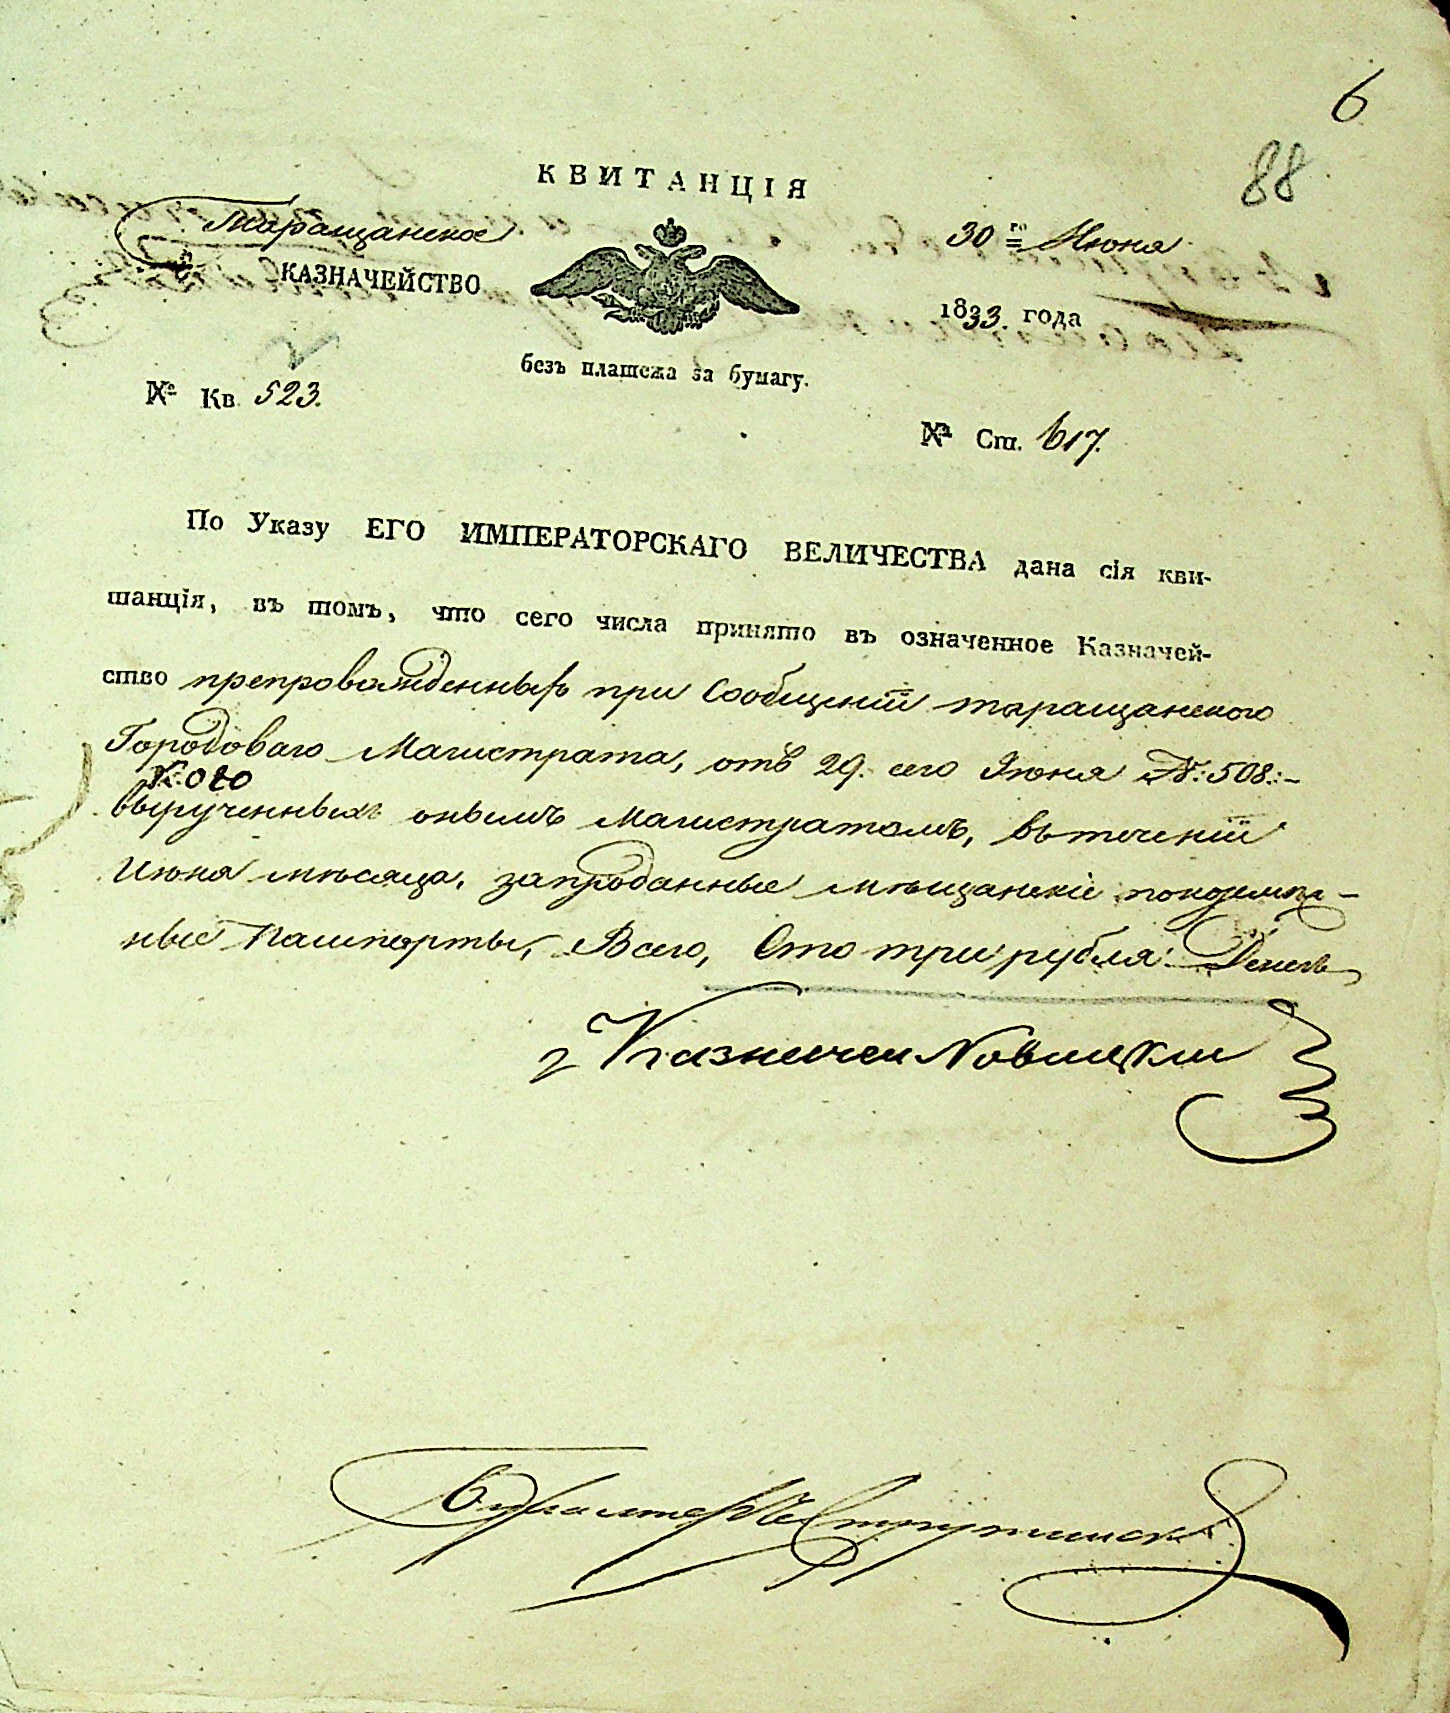 6
88
КВИТАНЦІЯ
Таращанское
30го Июня
КАЗНАЧЕЙСТВО
1833. года
безъ платежа за бумагу.
№ Кв. 523.
№ Ст. 617.
По Указу ЕГО ИМПЕРАТОРСКАГО ВЕЛИЧЕСТВА дана сія кви-
танція, въ томъ, что сего числа принято въ означенное Казначей-
ство препровожденныхъ при Сообщеніи таращанского
Городоваго Магистрата, отъ 29. сего Июня №: 508:-
вырученныхъ онымъ Магистратомъ, въ теченіи
Июня мѣсяца, запроданные мѣщанскіе покормеж-
ные Пашпорты, Всего, Сто три рубля Денегъ
Казначей Новицкий
Бухгалтеръ